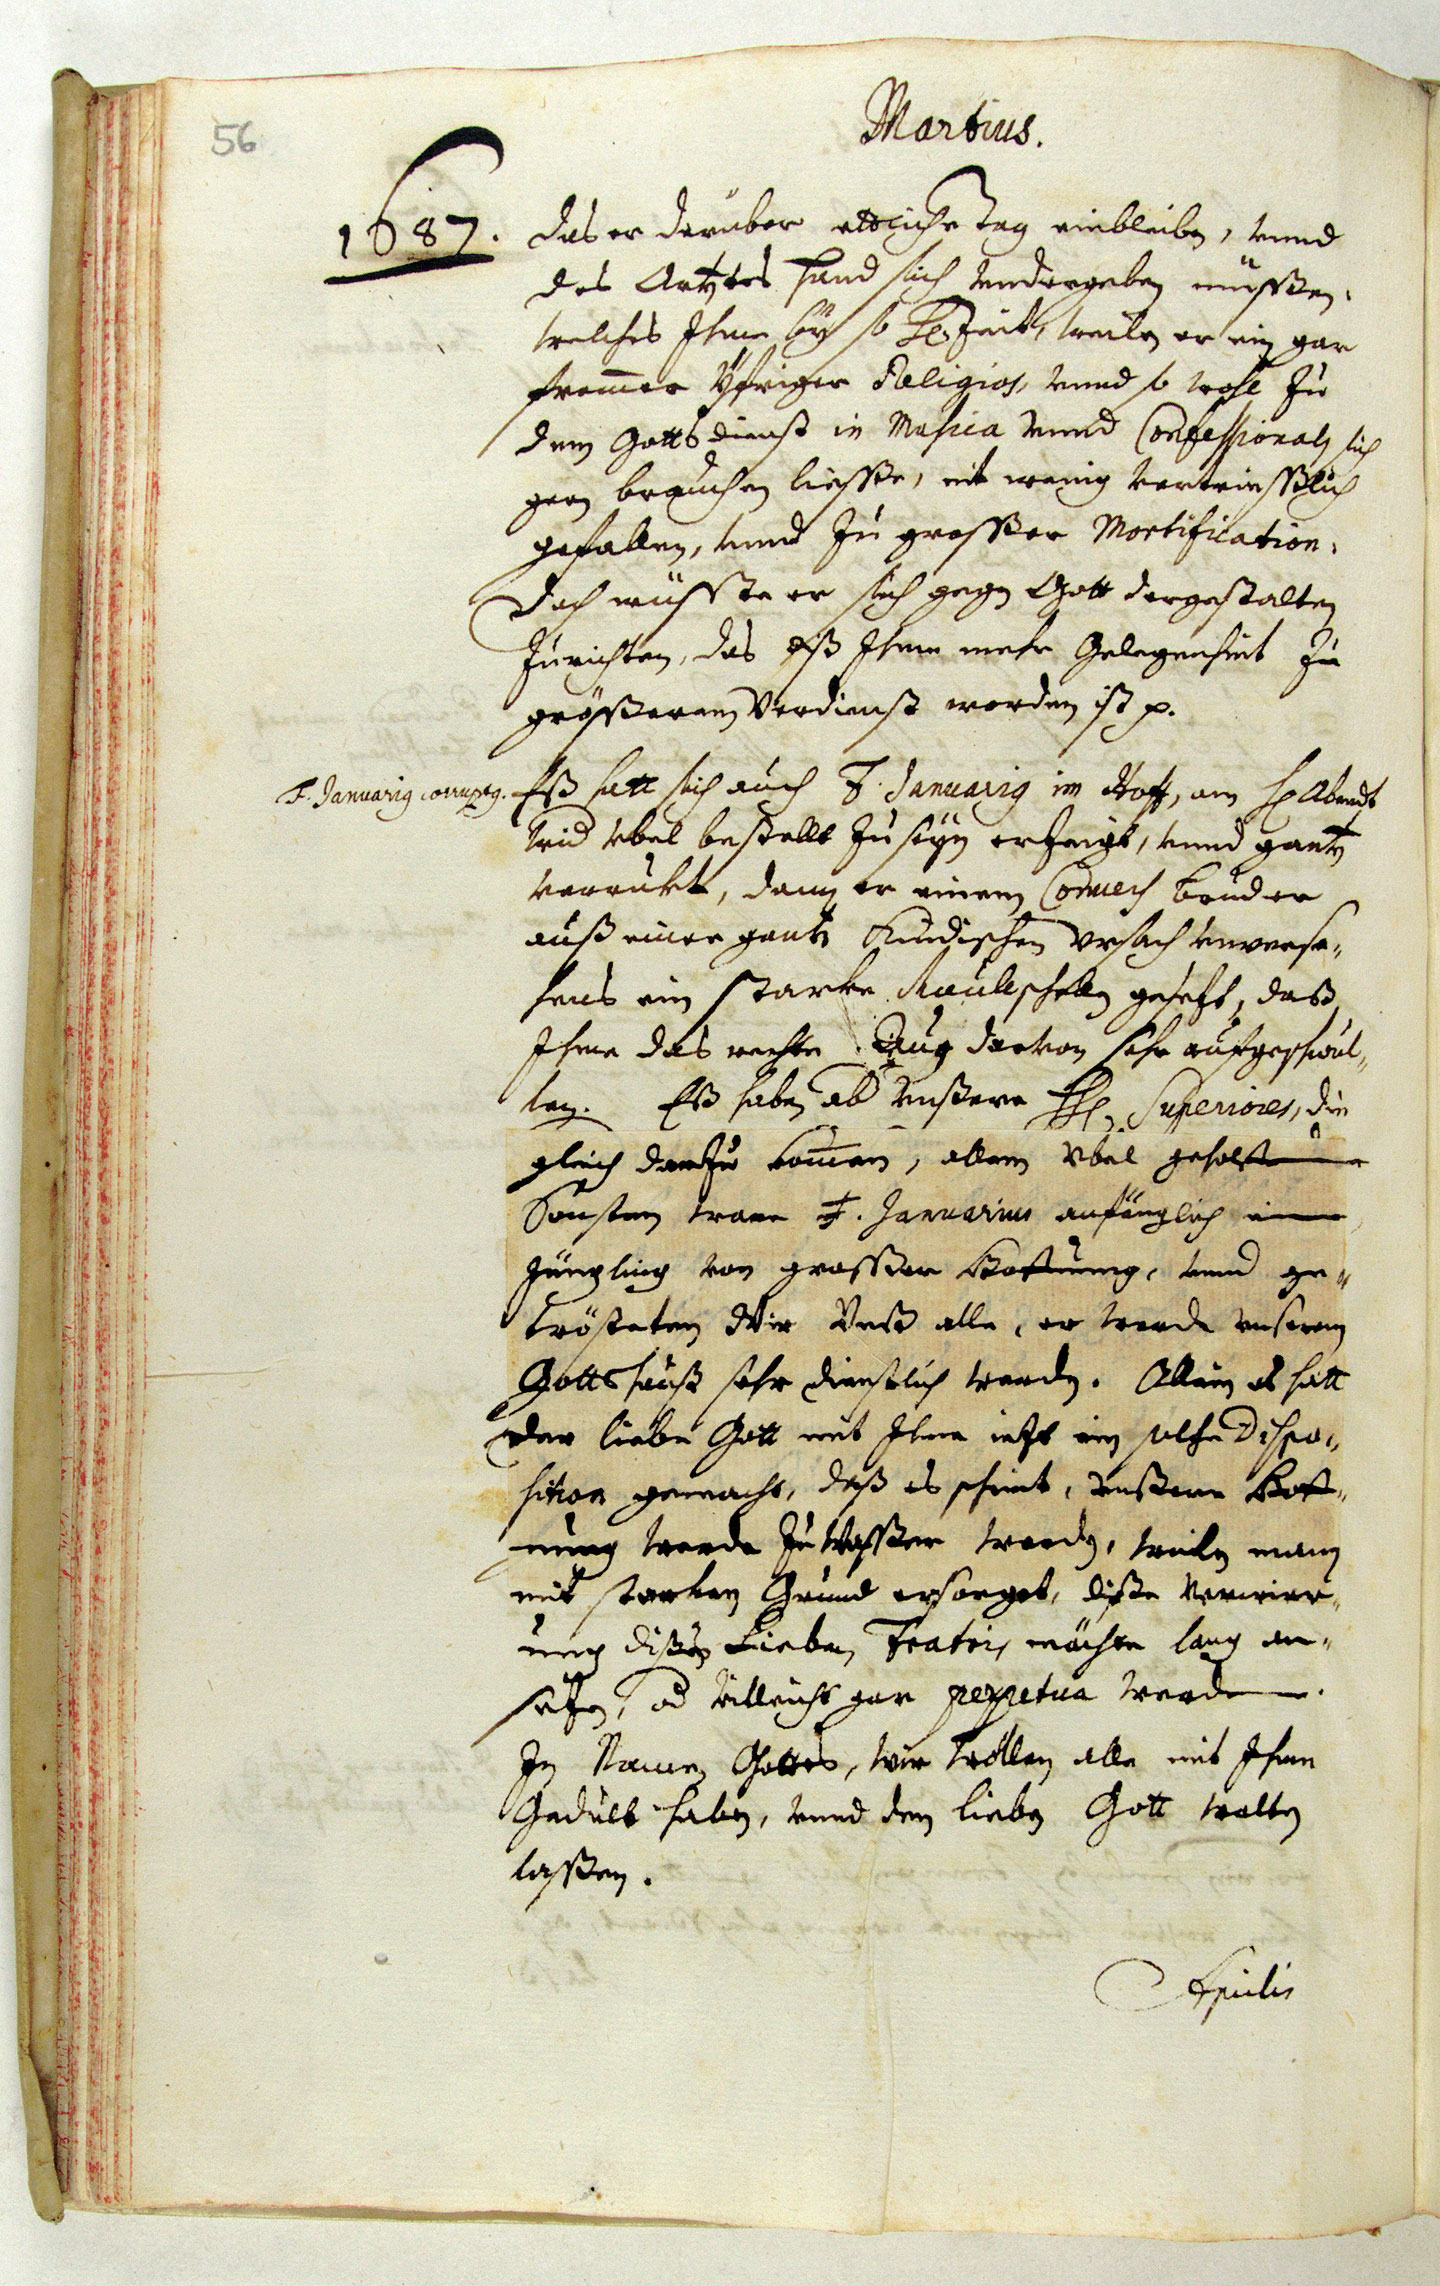 56
Martius.
1687.
das er darüber ettliche Tag einbleiben, vnnd
des Artztes hand sich vndergeben müeßen,
welches Ihme by so H. Zeit, weilen er ein gar
from̄er yfriger Religios, vnnd so wohl zu
dem Gottsdienst in Musica vnnd Confessionaln sich
gern brauchen liesse, nit wenig vertriesslich
gefallen, vnnd zu grosser Mortification.
Doch wüsste er sich gegen Gott dergestalten
zurichten, das es Ihme mehr Gelegenheit zu
grösserem Verdienst worden ist p.
F. Januarig corruptg.
Eß hatt sich auch F. Januarig im Hoff, am H. Abendt
vbel bestellt zu seyn erzeigt, vnnd gantz
verrukt, dann er einem Convers bruder
auß einer gantz kindischen vrsach vnverse-
hens ein starke Maulschellen gesetzt, daß
Ihme das rechte Aug darvon sehr aufgeschwul-
len. Eß haben ab vnßere HH. Superiores, die
gleich darzu kom̄en, allem vbel geholffen
Sonsten ware F. Januarius anfänglich ein
Jüngling von grosser Hoffnung, vnnd ge-
trösteten Wir Vnß alle, er werde vnserem
Gottshauß sehr dienstlich werden. Allein es hatt
der liebe Gott mit Ihme ietzt ein solche Dispo-
sition gemacht, daß es scheint, vnßere Hoff-
nung werde zu Wasser werden, weilen mann
mit starken Grund ersorget, diße verwirr-
ung dißes Lieben Fratris möchte lang an-
setzen, od villeicht gar perpetua werden.
In Namen Gottes, wir wöllen alle mit Ihme
Gedult haben, vnnd den lieben Gott walten
lassen.
Aprilis